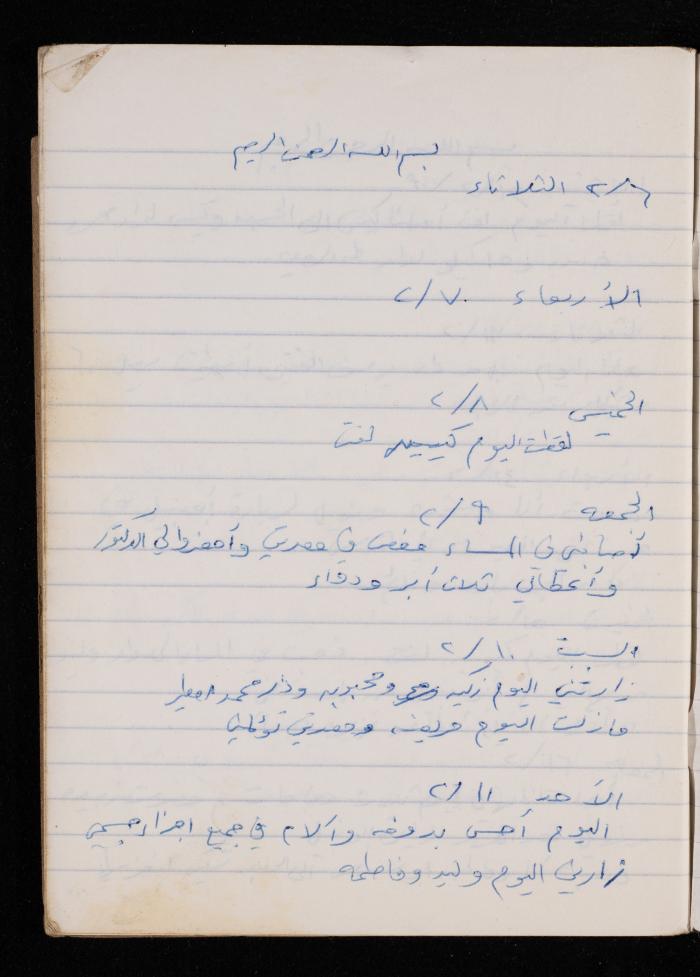 بسم الله الرحمن الرحيم
٢/٦ الثلاثاء
الأربعاء ٢/٧
الخميس ٢/٨
لقطت اليوم لفت
الجمعه ٢/٩
أصابني في المساء مغص في معدتي وأحضروا لي الدكتور
وأعطاني ثلاث أبر ودواء
السبت ٢/١٠
زارتني اليوم زكيه ومحبوبه محمد
مازلت اليوم مريضه ومعدتي تؤلمني
الأحد ٢/١١
اليوم أحس بدوخه وآلام في جميع اجزاء جسمي
زارني اليوم وليد وفاطمه